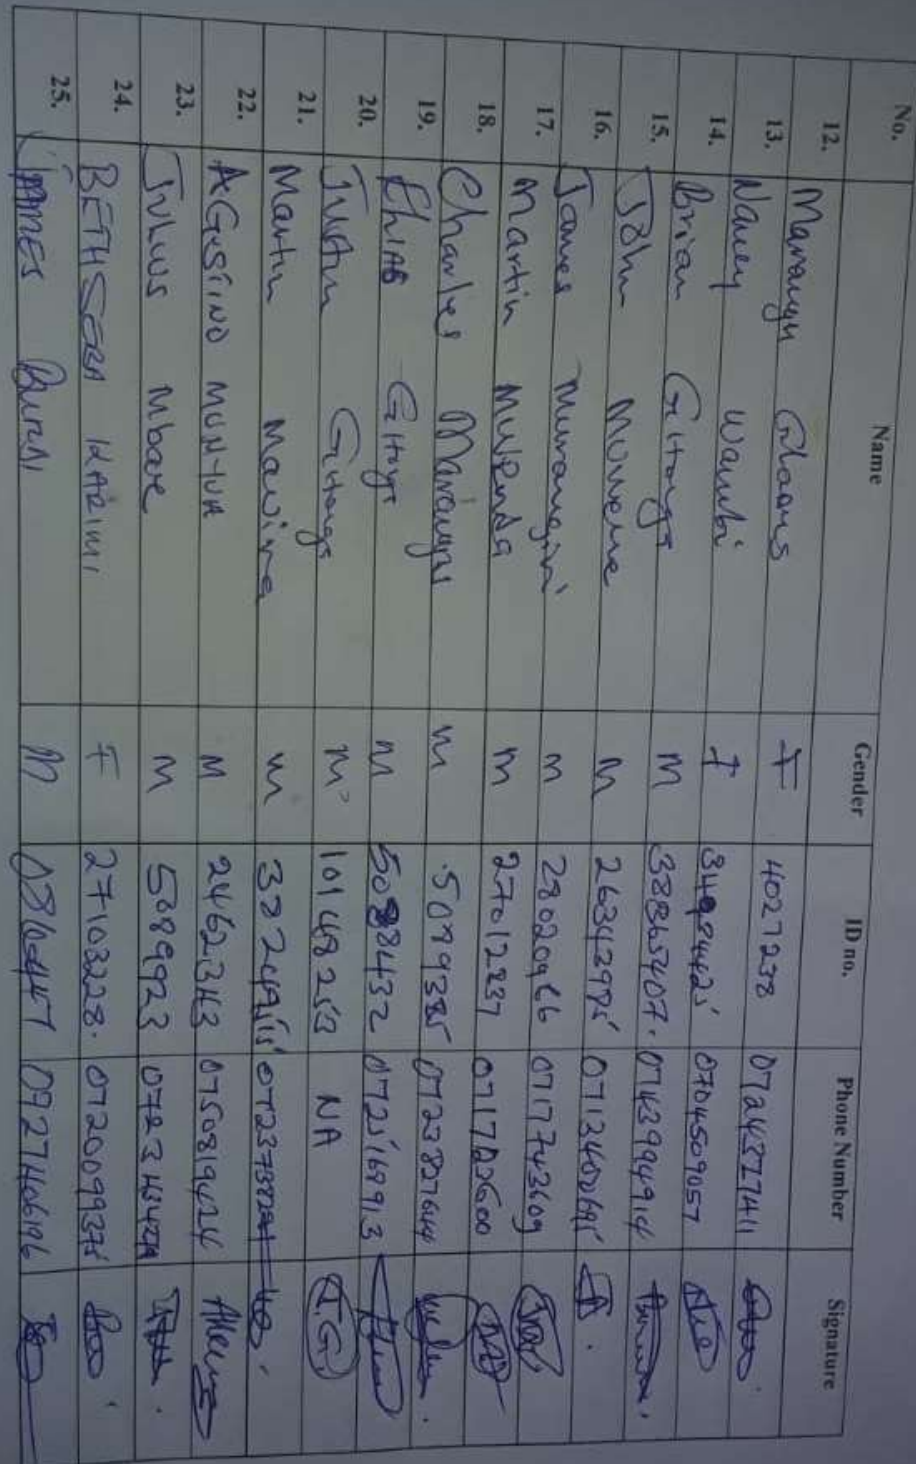 No. Name Gender ID no. Phone Number Signature
12. Marangu F 4027238 0724327411
13. Nancy Wambi F 34984425 0704509057
14. Brian Gitonga M 38865407. 0743994914
15. John Murrene M 26342995 0712400695
16. James m 28020966 0717743609
17. Martin Mulenda m 27012837
18. Charles Marangu m 5079385 0723827644
19. Elias Gitonga m 50884432 0725168913
20. Justin Gitonga m 10148253 NA J.G
21. Martin Mawira m
22. AGOSTINO MUNYUA M 24621343 0750819424
23. Julius Mbae M 5089923
24. BETHSEBA KARIMI F 27103228. 0720099375
25. JAMES M 0927406196